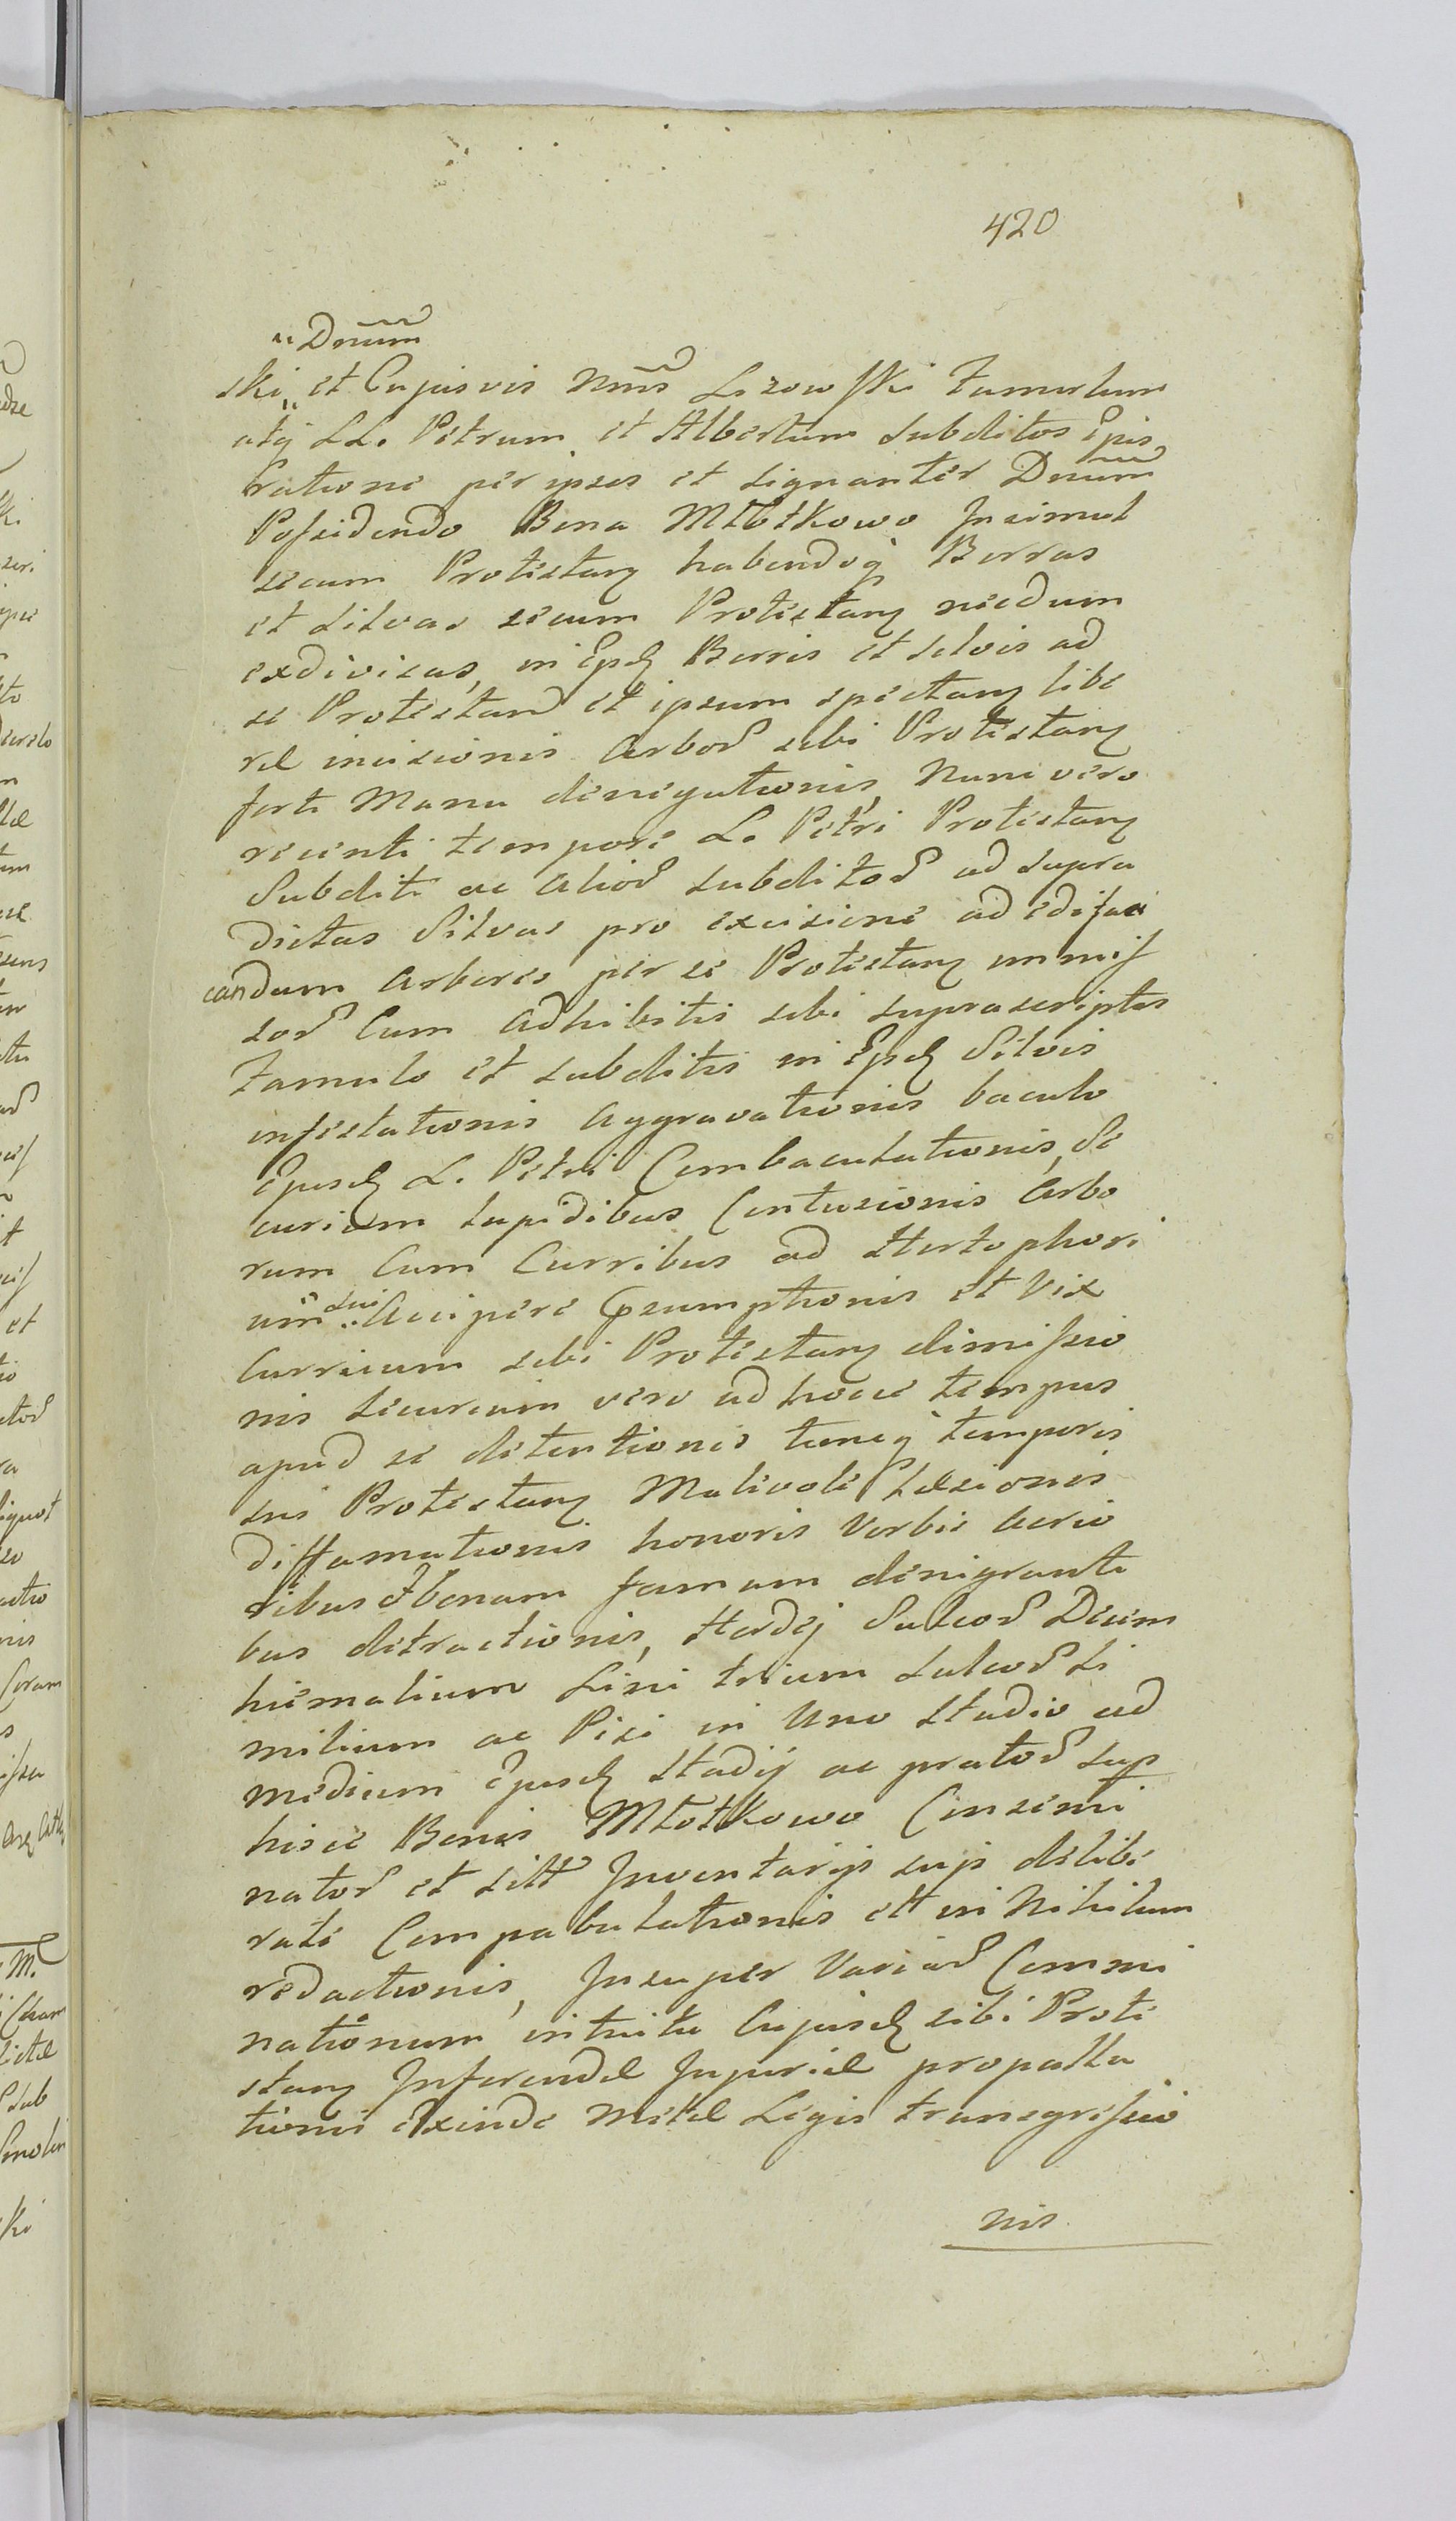 420
" Dnum
ski " et Cujusvis Nmis Lisowski Famulum
atq LL. Petrum et Albertum Subditos Ejus
ratione per ipsos et signanter Dnum
Possidendo Bona Młotkowo Insimul
secum Protestan habendoq Borras
et Silvas secum Protestan necdum
exdivisas, in Ejusd Borris et Silvis ad
se Protestand et ipsum spectan libe
ræ incisionis Arbor sibi Protestan
forti Manu denegationis, Nunc vero
recenti tempore L. Petri Protestan
Subditi ac Alior subditor ad supra
dictas Silvas pro excisione ad edifici
candum Arbores per se Protestan immis
sor Cum Adhibitis sibi suprascriptis
Famulo et subditis in Ejusd Silvis
infestationis Aggravationis baculo
Ejusd L. Petri Combaculationis, Se
curium lapidibus Contusionis Arbo
rum Cum Curribus ad Hertophori
um sui Accipere Præsumptionis et Vix
Curruum sibi Protestan dimissio
nis Securium vero ad hocce tempus
apud se detentionis tuncq temporis
sui Protestan Malivole Læsionis
diffamationis honoris Verbis Acrio
ribus et bonam famam denigranti
bus detractionis, Hordej Sulcor Decem
hiemalium Lini trium sulcor Si
milium ac Pisi in Uno Stadio ad
medium Ejusd Stadij ac prator sup
hisce Bonis Młotkowo Consemi
nator et sitt Inventarijs suis delibe
rate Compabulationis ett in Nihilum
redactionis, Insuper Variar Commi
nationum intuitu Cujusd sibi Prote
stan Inferendæ Injuriæ propalla
tionis Exinde Metæ Legis transgressio
nis